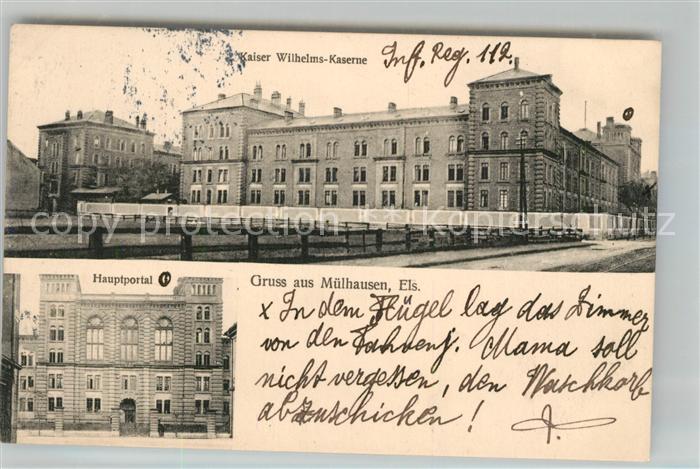 Kaiser Wilhelms-Kaserne Inf. Reg. 112.
copyright protection ** Kopierschutz
Hauptportal
Gruss aus Mülhausen, Els.
x In dem Flügel lag das Zimmer
von den Fahnenj. Mama soll
nicht vergessen, den Waschkorb
abzuschicken!